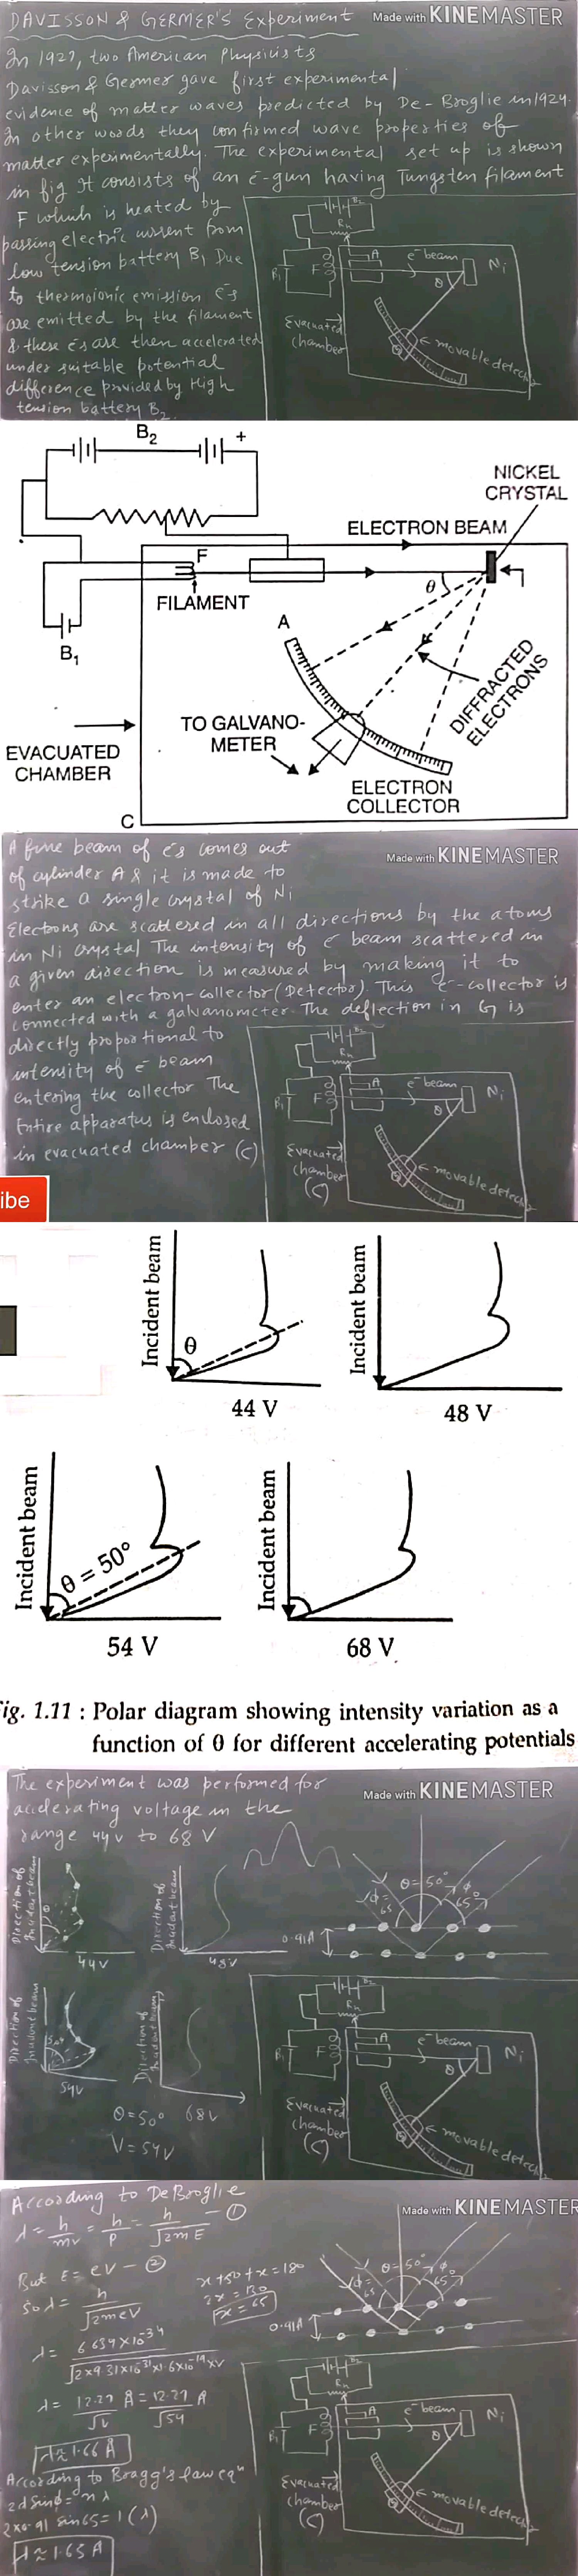 DAVISSON & GERMER'S Experiment
Made with KINEMASTER
In 1927, two American Physicists
Davisson & Germer gave first experimental
evidence of matter waves predicted by De-Broglie in 1924.
In other words they confirmed wave properties of
matter experimentally. The experimental set up is shown
in fig It consists of an e-gun having Tungsten filament
F which is heated by
passing electric current from
low tension battery B1 Due
to thermoionic emission e-s
are emitted by the filament
& these e-s are then accelerated
under suitable potential
difference provided by High
tension battery B2
B2
Rh
B1
F
A
e- beam
Ni
θ
Evacuated
chamber
movable detector
B2
+
NICKEL
CRYSTAL
ELECTRON BEAM
F
FILAMENT
θ
A
B1
DIFFRACTED
ELECTRONS
TO GALVANO-
METER
EVACUATED
CHAMBER
ELECTRON
COLLECTOR
C
A fine beam of e-s comes out
Made with KINEMASTER
of cylinder A & it is made to
strike a single crystal of Ni
Electons are scattered in all directions by the atoms
in Ni crystal The intensity of e- beam scattered in
a given direction is measured by making it to
enter an electron-collector (Detector). This e-collector is
connected with a galvanometer. The deflection in G is
directly proportional to
intensity of e- beam
entering the collector The
Entire apparatus is enclosed
in evacuated chamber (C)
Rh
B1
F
A
e- beam
Ni
θ
Evacuated
chamber
(C)
movable detector
ibe
Incident beam
θ
44 V
Incident beam
48 V
Incident beam
θ = 50°
54 V
Incident beam
68 V
ig. 1.11 : Polar diagram showing intensity variation as a
function of θ for different accelerating potentials
The experiment was performed for
Made with KINEMASTER
accelerating voltage in the
range 44V to 68 V
Direction of
Incident beam
θ
44V
Direction of
Incident beam
48V
θ=50°
ϕ
65°
ϕ=
65
0.91A
Direction of
Incident beam
50
54V
Direction of
Incident beam
68V
θ=50°
V=54V
B2
Rh
B1
F
A
e- beam
Ni
θ
Evacuated
chamber
(C)
movable detector
According to De Broglie
Made with KINEMASTER
λ = h/mv = h/p = h/√2mE - ①
But E = eV - ②
so λ = h/√2meV
x+50+x=180
2x=130
x=65
θ=50°
ϕ
65°
ϕ=
65
0.91A
λ = 6.634×10-34/√2×9.31×10-31×1.6×10-19×V
λ = 12.27/√V Å = 12.27/√54 Å
λ ≈ 1.66 Å
According to Bragg's law eqn
2d sinϕ = nλ
2×0.91 sin65 = 1(λ)
λ ≈ 1.65 A
B2
Rh
B1
F
A
e- beam
Ni
θ
Evacuated
chamber
(C)
movable detector